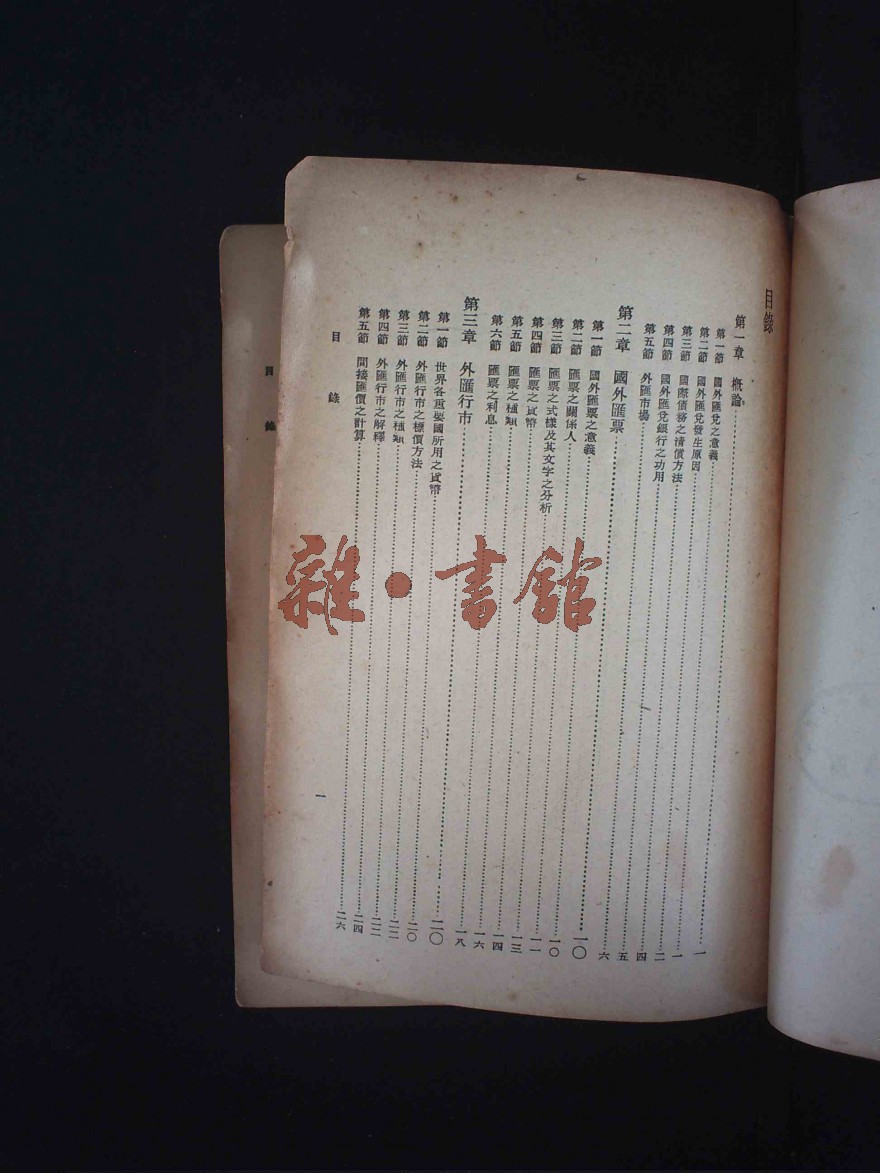 目錄
第一章 概論……一
第一節 國外匯兌之意義……一
第二節 國外匯兌發生原因……二
第三節 國際債務之清償方法……四
第四節 國外匯兌銀行之功用……五
第五節 外匯市場……六
第二章 國外匯票……一〇
第一節 國外匯票之意義……一〇
第二節 匯票之關係人……一一
第三節 匯票之式樣及其文字之分析……一三
第四節 匯票之貨幣……一四
第五節 匯票之種類……一六
第六節 匯票之利息……一八
第三章 外匯行市……二〇
第一節 世界各重要國所用之貨幣……二〇
第二節 外匯行市之標價方法……二二
第三節 外匯行市之種類……二二
第四節 外匯行市之解釋……二四
第五節 間接匯價之計算……二六
目錄
一
目錄
雜·書館